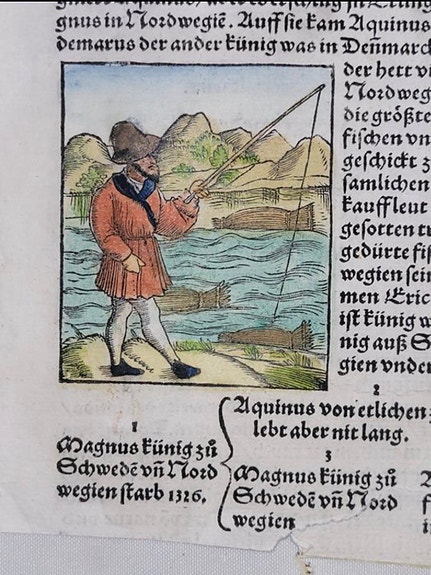 gnus in Nordwegiẽ. Auff sie kam Aquinus
demarus der ander künig was in Deñmarck
der hett vi
Nordweg
die größte
fischen vn
geschickt z
samlichen
kauffleut
gesotten tr
gedürte fis
wegien sein
men Eric
ist künig w
nig auß S
gien vnder
1
Magnus künig zů
Schwedẽ vñ Nord
wegien starb 1326.
2
Aquinus von etlichen z
lebt aber nit lang.
3
Magnus künig zů
Schwedẽ vñ Nord
wegien